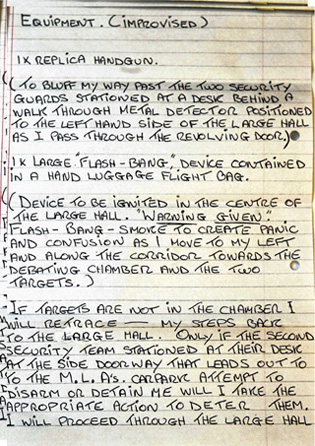 EQUIPMENT. (IMPROVISED)
1 X REPLICA HANDGUN.
(TO BLUFF MY WAY PAST THE TWO SECURITY
GUARDS STATIONED AT A DESK BEHIND A
WALK THROUGH METAL DETECTOR POSITIONED
TO THE LEFT HAND SIDE OF THE LARGE HALL
AS I PASS THROUGH THE REVOLVING DOOR.)
1 X LARGE "FLASH-BANG", DEVICE CONTAINED
IN A HAND LUGGAGE FLIGHT BAG.
(DEVICE TO BE IGNITED IN THE CENTRE OF
THE LARGE HALL. "WARNING GIVEN".
FLASH-BANG-SMOKE TO CREATE PANIC
AND CONFUSION AS I MOVE TO MY LEFT
AND ALONG THE CORRIDOR TOWARDS THE
DEBATING CHAMBER AND THE TWO
TARGETS.)
IF TARGETS ARE NOT IN THE CHAMBER I
WILL RETRACE — MY STEPS BACK
TO THE LARGE HALL. ONLY IF THE SECOND
SECURITY TEAM STATIONED AT THEIR DESK
AT THE SIDE DOORWAY THAT LEADS OUT TO
TO THE M.L.A's. CARPARK ATTEMPT TO
DISARM OR DETAIN ME WILL I TAKE THE
APPROPRIATE ACTION TO DETER THEM.
I WILL PROCEED THROUGH THE LARGE HALL